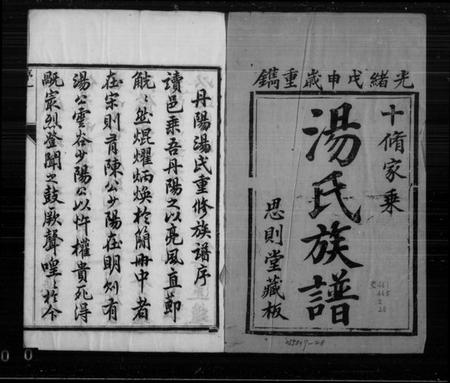 光緒戊申歲重鐫
十脩家乘
湯氏族譜
思則堂藏板
丹陽湯氏重修族譜序
讀邑乘吾丹陽之以亮風直節
觥觥然焜耀炳煥於簡冊中者
在宋則有陳公少陽在明則有
湯公雲谷少陽公以忤權貴死得
厥裳烈登聞之鼓厥聲喤於今